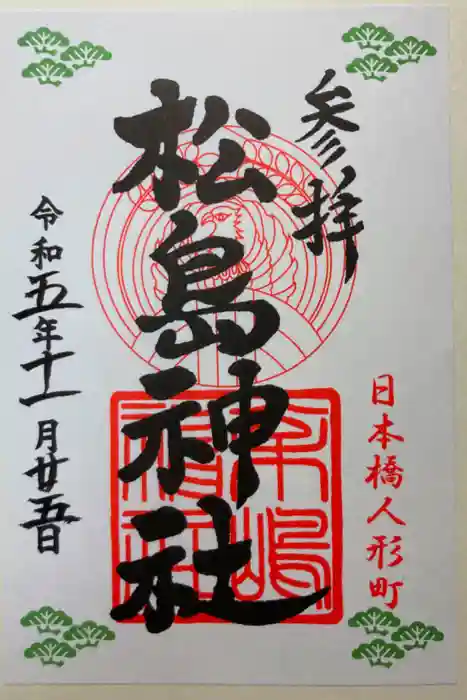 参拝
日本橋人形町
松島神社
令和五年十一月廿五日